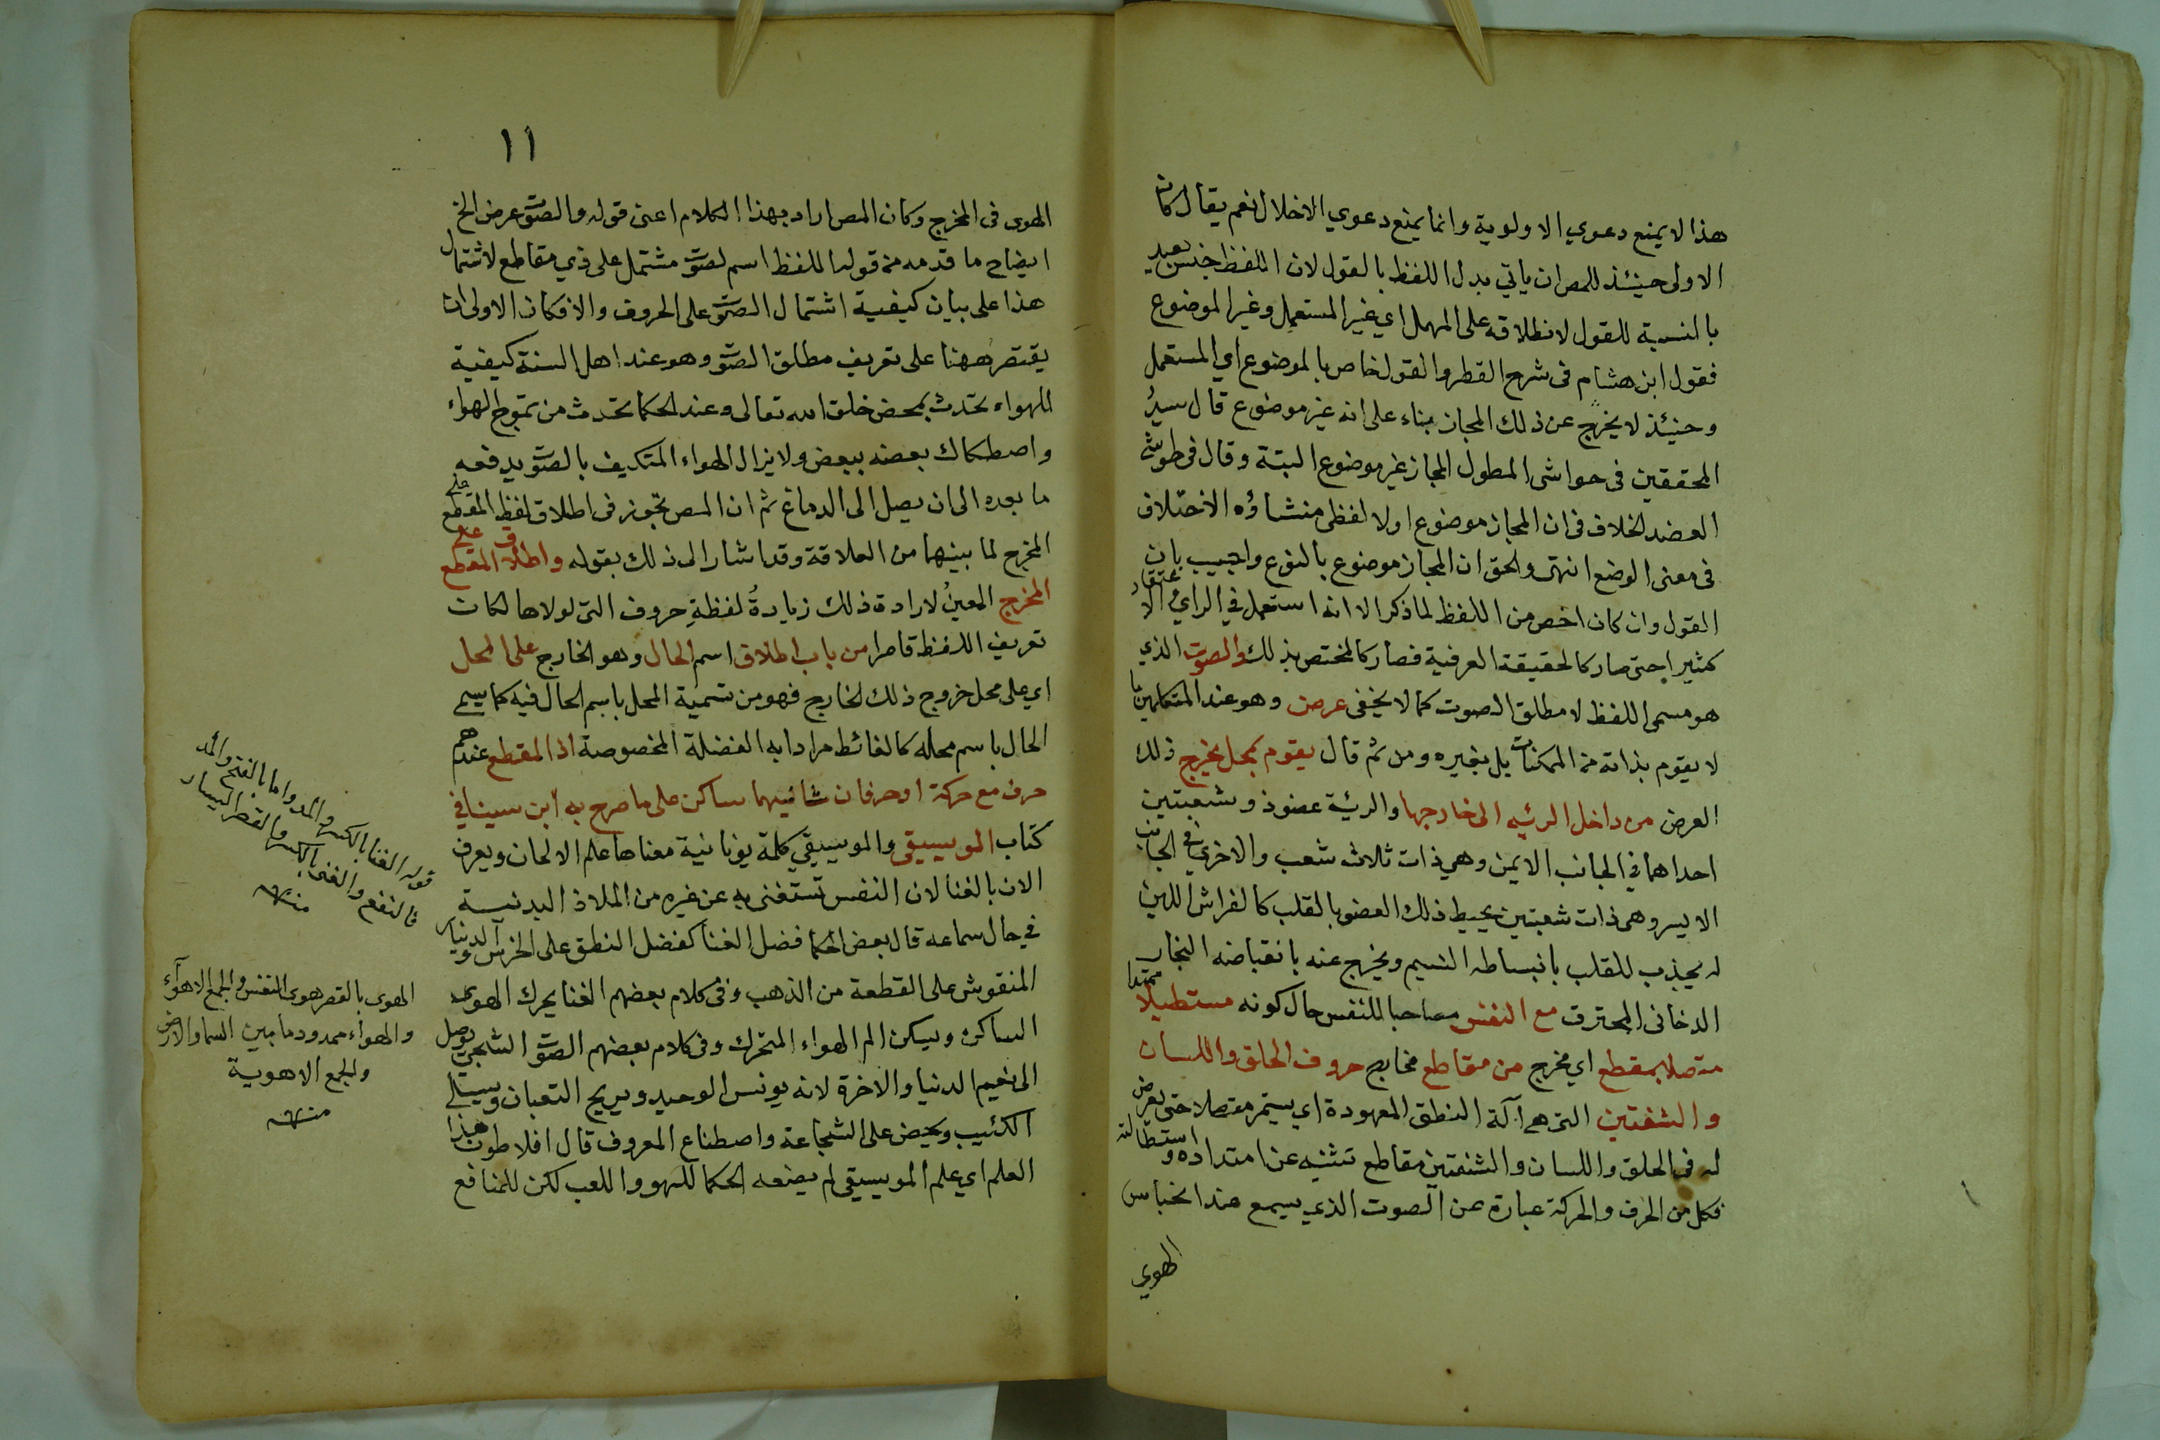 هذا لا يمنع دعوي الاولوية وانما يمنع دعوي الاخلال نعم يقال كان
الاولى حينئذ للمص ان ياتي بدل اللفظ بالقول لان اللفظ جنس بعيد
بالنسبة للقول لانطلاقه على المهمل اي غير المستعمل وغير الموضوع
فقول ابن هشام فى شرح القطر والقول خاص بالموضوع اي المستعمل
وحنيئذ لا يخرج عن ذلك المجاز بناء على انه غير موضوع قال سيد
المحققين فى حواشى المطول المجاز غير موضوع البتة وقال فى حواشي
العضد الخلاف فى ان المجاز موضوع اولا لفظى منشاؤه الاختلاف
فى معنى الوضع انتهى والحق ان المجاز موضوع بالنوع واجيب بان
القول وان كان اخص من اللفظ لما ذكر الا انه استعمل في الراي الاعتقاد
كثيرا حتى صار كالحقيقة العرفية فصار كالمختص بذلك والصوت الذي
هو مسمى اللفظ لا مطلق الصوت كما لا يخفى عرض وهو عند المتكلمين ما
لا يقوم بذاته من الممكنات بل بغيره ومن ثم قال يقوم بمحل يخرج ذلك
العرض من داخل الرئيه الى خارجها والرئية عضو ذو شعبتين
احداهما في الجانب الايمن وهي ذات ثلاث شعب والاخري في الجانب
الايسر وهى ذات شعبتين يحيط ذلك العضو بالقلب كالفراش اللين
له يجذب للقلب بانبساطه النسيم ويخرج عنه بانقباضه البخار
الدخانى المحترق مع النفس مصاحبا للنفس حال كونه مستطيلا ممتدا
متصلا بمقطع اي مخرج من مقاطع مخارج حروف الحلق واللسان
والشفتين التى هى آلة النطق المعهودة اي يستمر متصلا حتى يعرض
له فى الحلق واللسان والشفتين مقاطع تثنيه عن امتداده واستطالته
فكل من الحرف والحركة عبارة عن الصوت الذي يسمع عند انحباس
الهوي
١١
الهوى فى المخرج وكان المص اراد بهذا الكلام اعنى قوله والصوت عرض الخ
ايضاح ما قدمه من قوله اللفظ اسم لصوت مشتمل على ذي مقاطع لاشتمال
هذا على بيان كيفية اشتمال الصوت على الحروف والا فكان الاولى ان
يقتصر ههنا على تعريف مطلق الصوت وهو عند اهل السنة كيفية
للهواء تحدث بمحض خلق الله تعالى وعند الحكما تحدث من تموج الهواء
واصطكاك بعضه ببعض ولا يزال الهواء المتكيف بالصوت يدفعه
ما بعده الى ان يصل الى الدماغ ثم ان المص تجوز فى اطلاق لفظ المقطع على
المخرج لما بينهما من العلاقة وقد اشار الى ذلك بقوله واطلاق المقطع على
المخرج المعين لارادة ذلك زيادة لفظة حروف التى لولاها لكان
تعريف اللفظ قاصرا من باب اطلاق اسم الحال وهو الخارج على المحل
اي على محل خروج ذلك الخارج فهو من تسمية المحل باسم الحال فيه كما يسمى
الحال باسم محله كالغائط مرادا به الفضلة المخصوصة اذا المقطع عندهم
حرف مع حركة او حرفان ثانيهما ساكن على ما صرح به ابن سينا في
كتاب الموسيقى والموسيقي كلمة يونانية معناها علم الالحان ويعرف
الان بالغنا لان النفس تستغنى به عن غيره من الملاذ البدنية
في حال سماعه قال بعض الحكما فضل الغنا كفضل النطق على الخرس والدينار
المنقوش على القطعة من الذهب وفى كلام بعضهم الغنا يحرك الهوى
الساكن ويسكن الم الهواء المتحرك وفى كلام بعضهم الصوت الشجي يوصل
الى نعيم الدنيا والاخرة لانه يونس الوحيد ويريح التعبان ويسلى
الكئيب ويحض على الشجاعة واصطناع المعروف قال افلاطون هذا
العلم اي علم الموسيقى لم يضعه الحكما للهو واللعب لكن للمنافع
قوله الغنا بالكسر والمد واما بالفتح والمد
فالنفع والغنى بالكسر والقصر اليسار
منه
الهوى بالقصر هوى النفس والجمع الاهوآء
والهواء ممدود ما بين السما والارض
والجمع الاهوية
منه